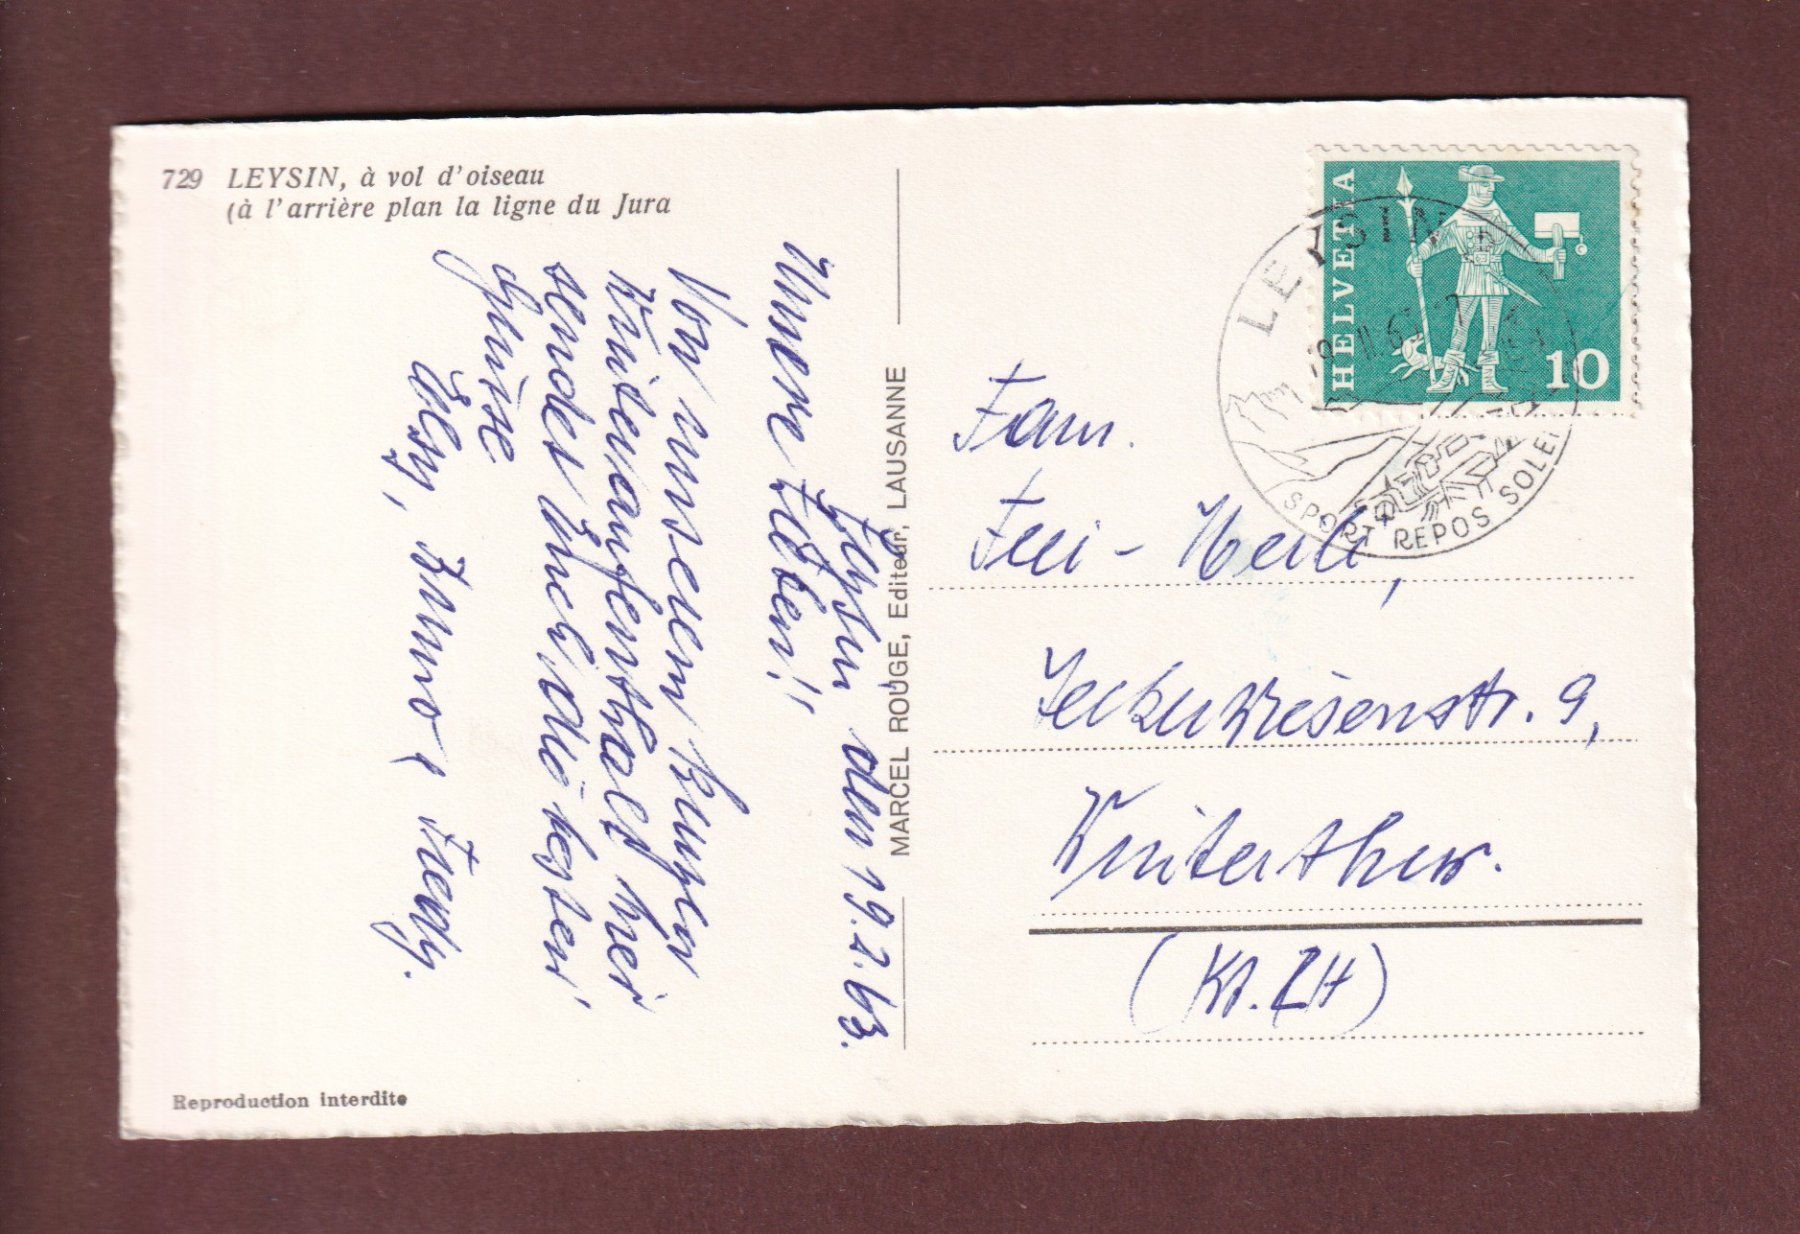 729 LEYSIN, à vol d'oiseau
(à l'arrière plan la ligne du Jura
Leysin, den 19.2.63.
Unsere Lieben!!
Von unserem kurzen
Winteraufenthalt hier
sendet Euch die besten
Grüsse
Elsy, Bruno, Fredy.
Reproduction interdite
MARCEL ROUGE, Editeur, LAUSANNE
HELVETIA
10
LEYSIN
SPORT REPOS SOLEIL
Fam.
Frei-
Winterthur.
(Kt. ZH)